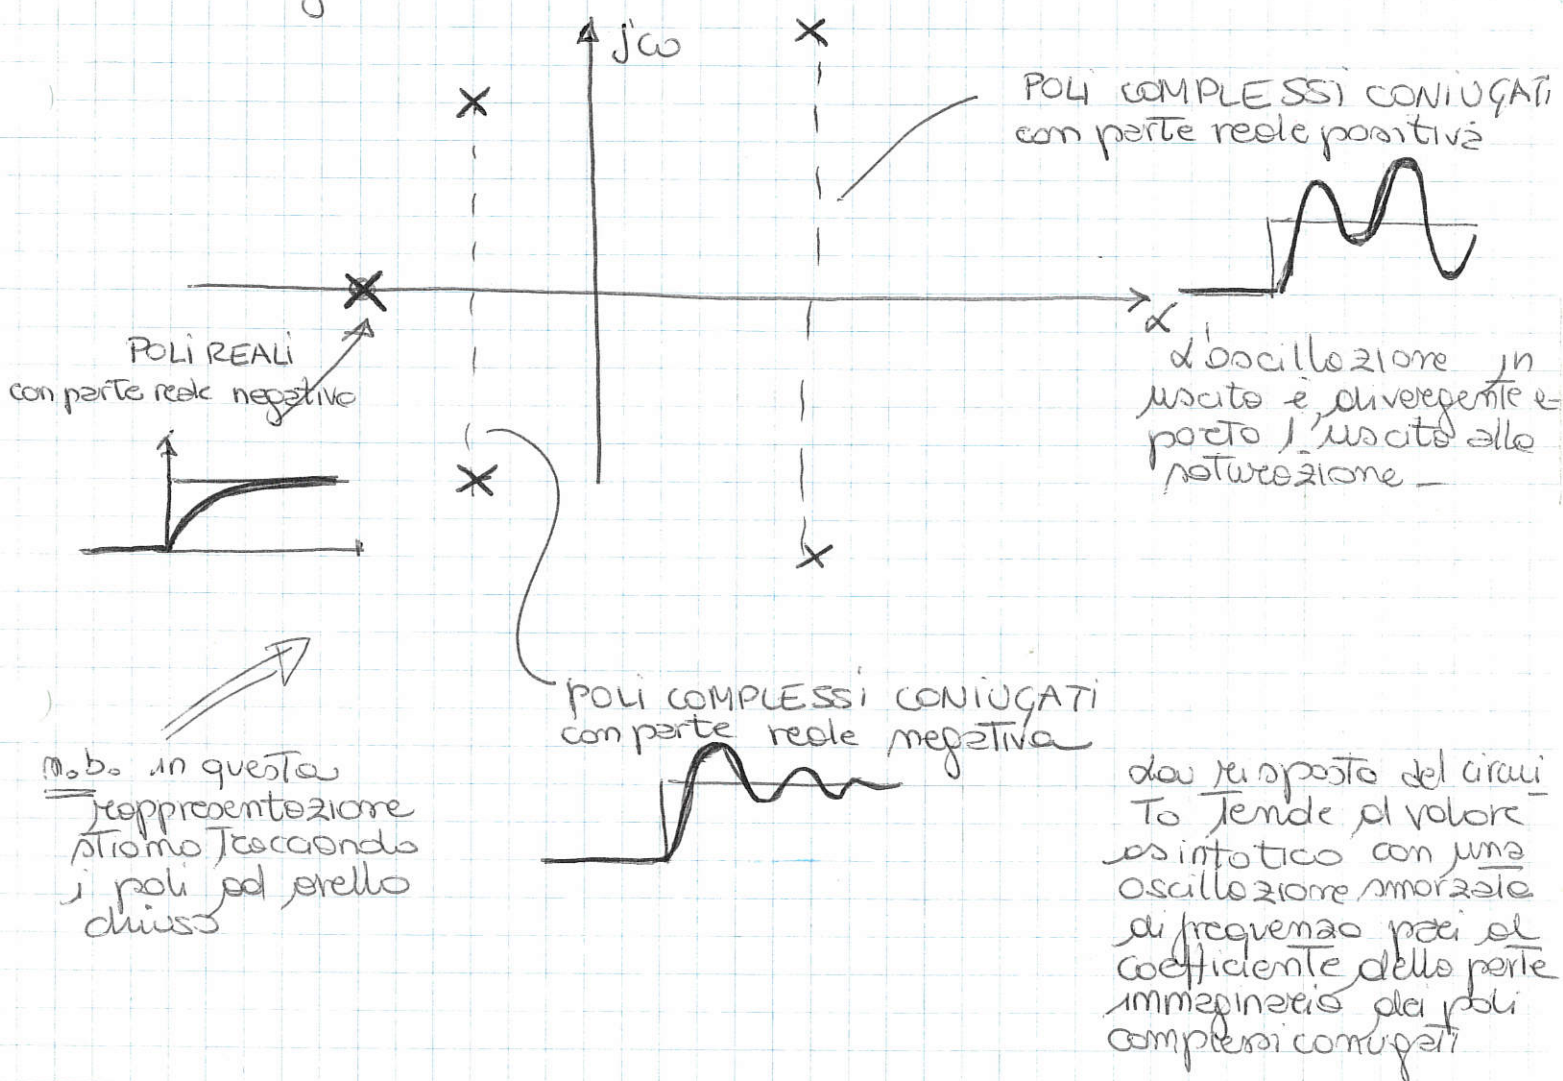 jω
POLI COMPLESSI CONIUGATI
con parte reale positiva
α
L'oscillazione in
uscita è divergente e
porta l'uscita alla
saturazione –
POLI REALI
con parte reale negativa
POLI COMPLESSI CONIUGATI
con parte reale negativa
n.b. in questa
rappresentazione
stiamo tracciando
i poli ad anello
chiuso
La risposta del circui
to tende al valore
asintotico con una
oscillazione smorzata
di frequenza pari al
coefficiente della parte
immaginaria dei poli
complessi coniugati